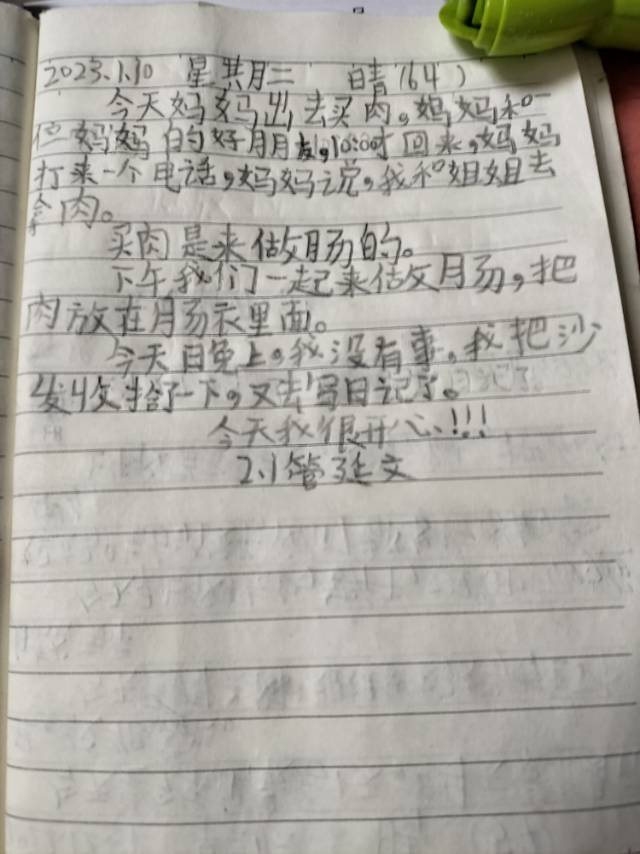 2023.1.10 星期二 晴(64)
今天妈妈出去买肉。妈妈和一
位妈妈的好朋友,10:00时回来,妈妈
打来一个电话,妈妈说,我和姐姐去
拿肉。
买肉是来做肠的。
下午我们一起来做肠,把
肉放在肠衣里面。
今天晚上,我没有事,我把沙
发收拾了一下,又去写日记了。
今天我很开心!!!
2.1管廷文